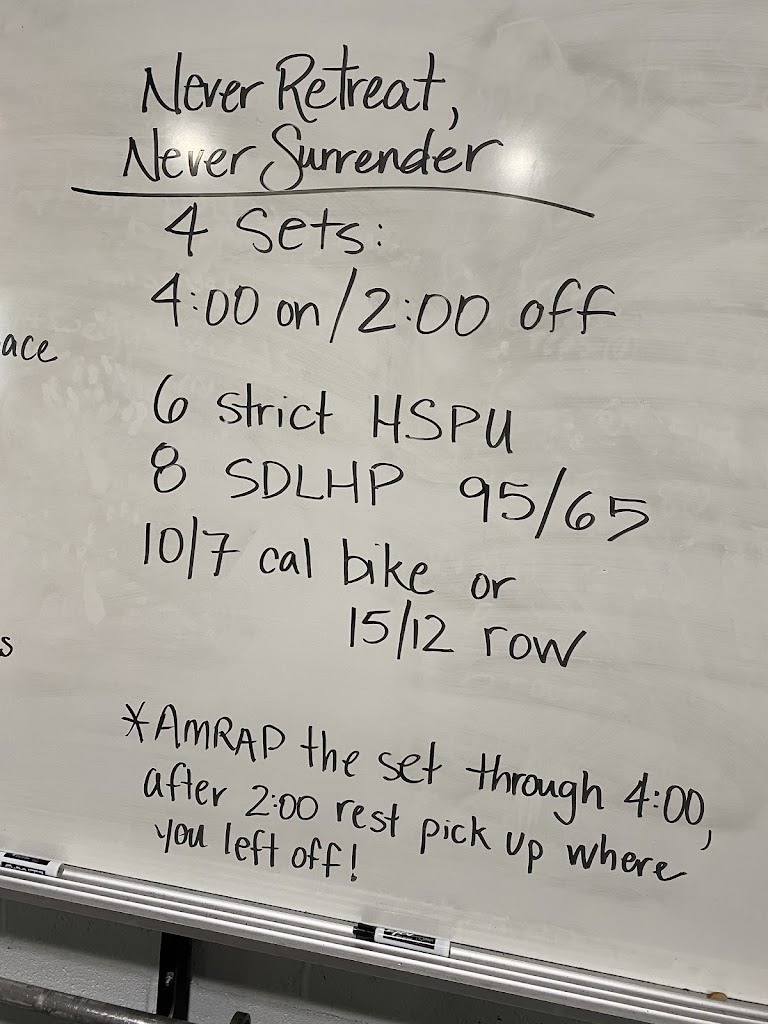 Never Retreat,
Never Surrender
4 Sets:
4:00 on/2:00 off
ace
6 strict HSPU
8 SDLHP 95/65
10/7 cal bike or
15/12 row
s
*AMRAP the set through 4:00,
after 2:00 rest pick up where
you left off!